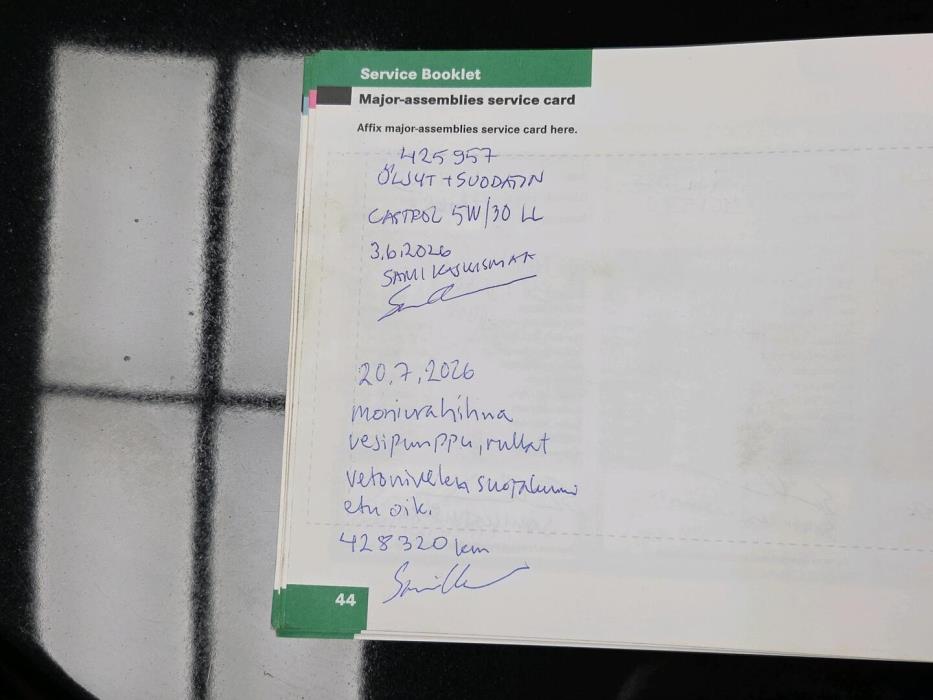 Service Booklet
Major-assemblies service card
Affix major-assemblies service card here.
425957
ÖLJYT + SUODATIN
CASTROL 5W/30 LL
3.6.2026
SAMI
20.7.2026
moniurahihna
vesipumppu, rullat
vetonivelen suojakumi
etu oik.
428320 km
44